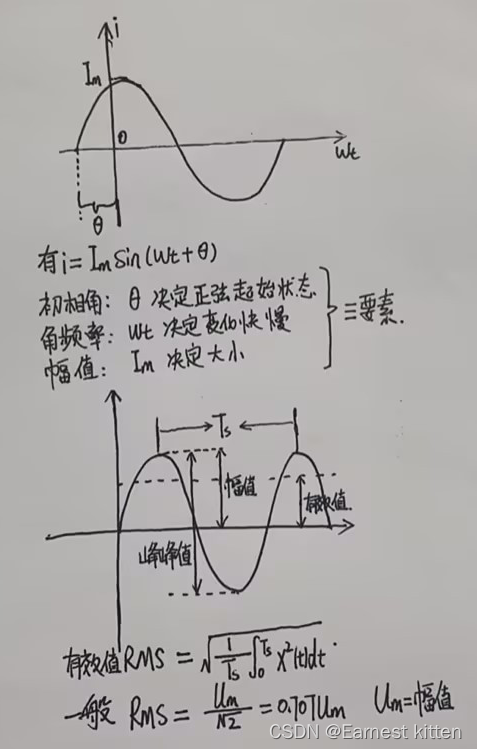 i
Im
0
wt
θ
有 i = Im Sin(wt+θ)
初相角: θ 决定正弦起始状态
角频率: wt 决定变化快慢
幅值: Im 决定大小
三要素.
Ts
幅值
有效值
峰峰值
有效值 RMS = √(1/Ts ∫₀^Ts x²(t)dt)
一般 RMS = Um/√2 = 0.707Um Um=幅值
CSDN @Earnest kitten